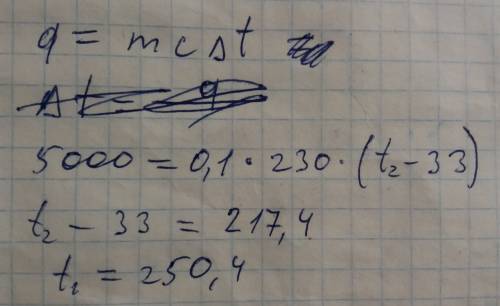 q = mcΔt
Δt = q
5000 = 0,1 · 230 · (t₂ - 33)
t₂ - 33 = 217,4
t₂ = 250,4